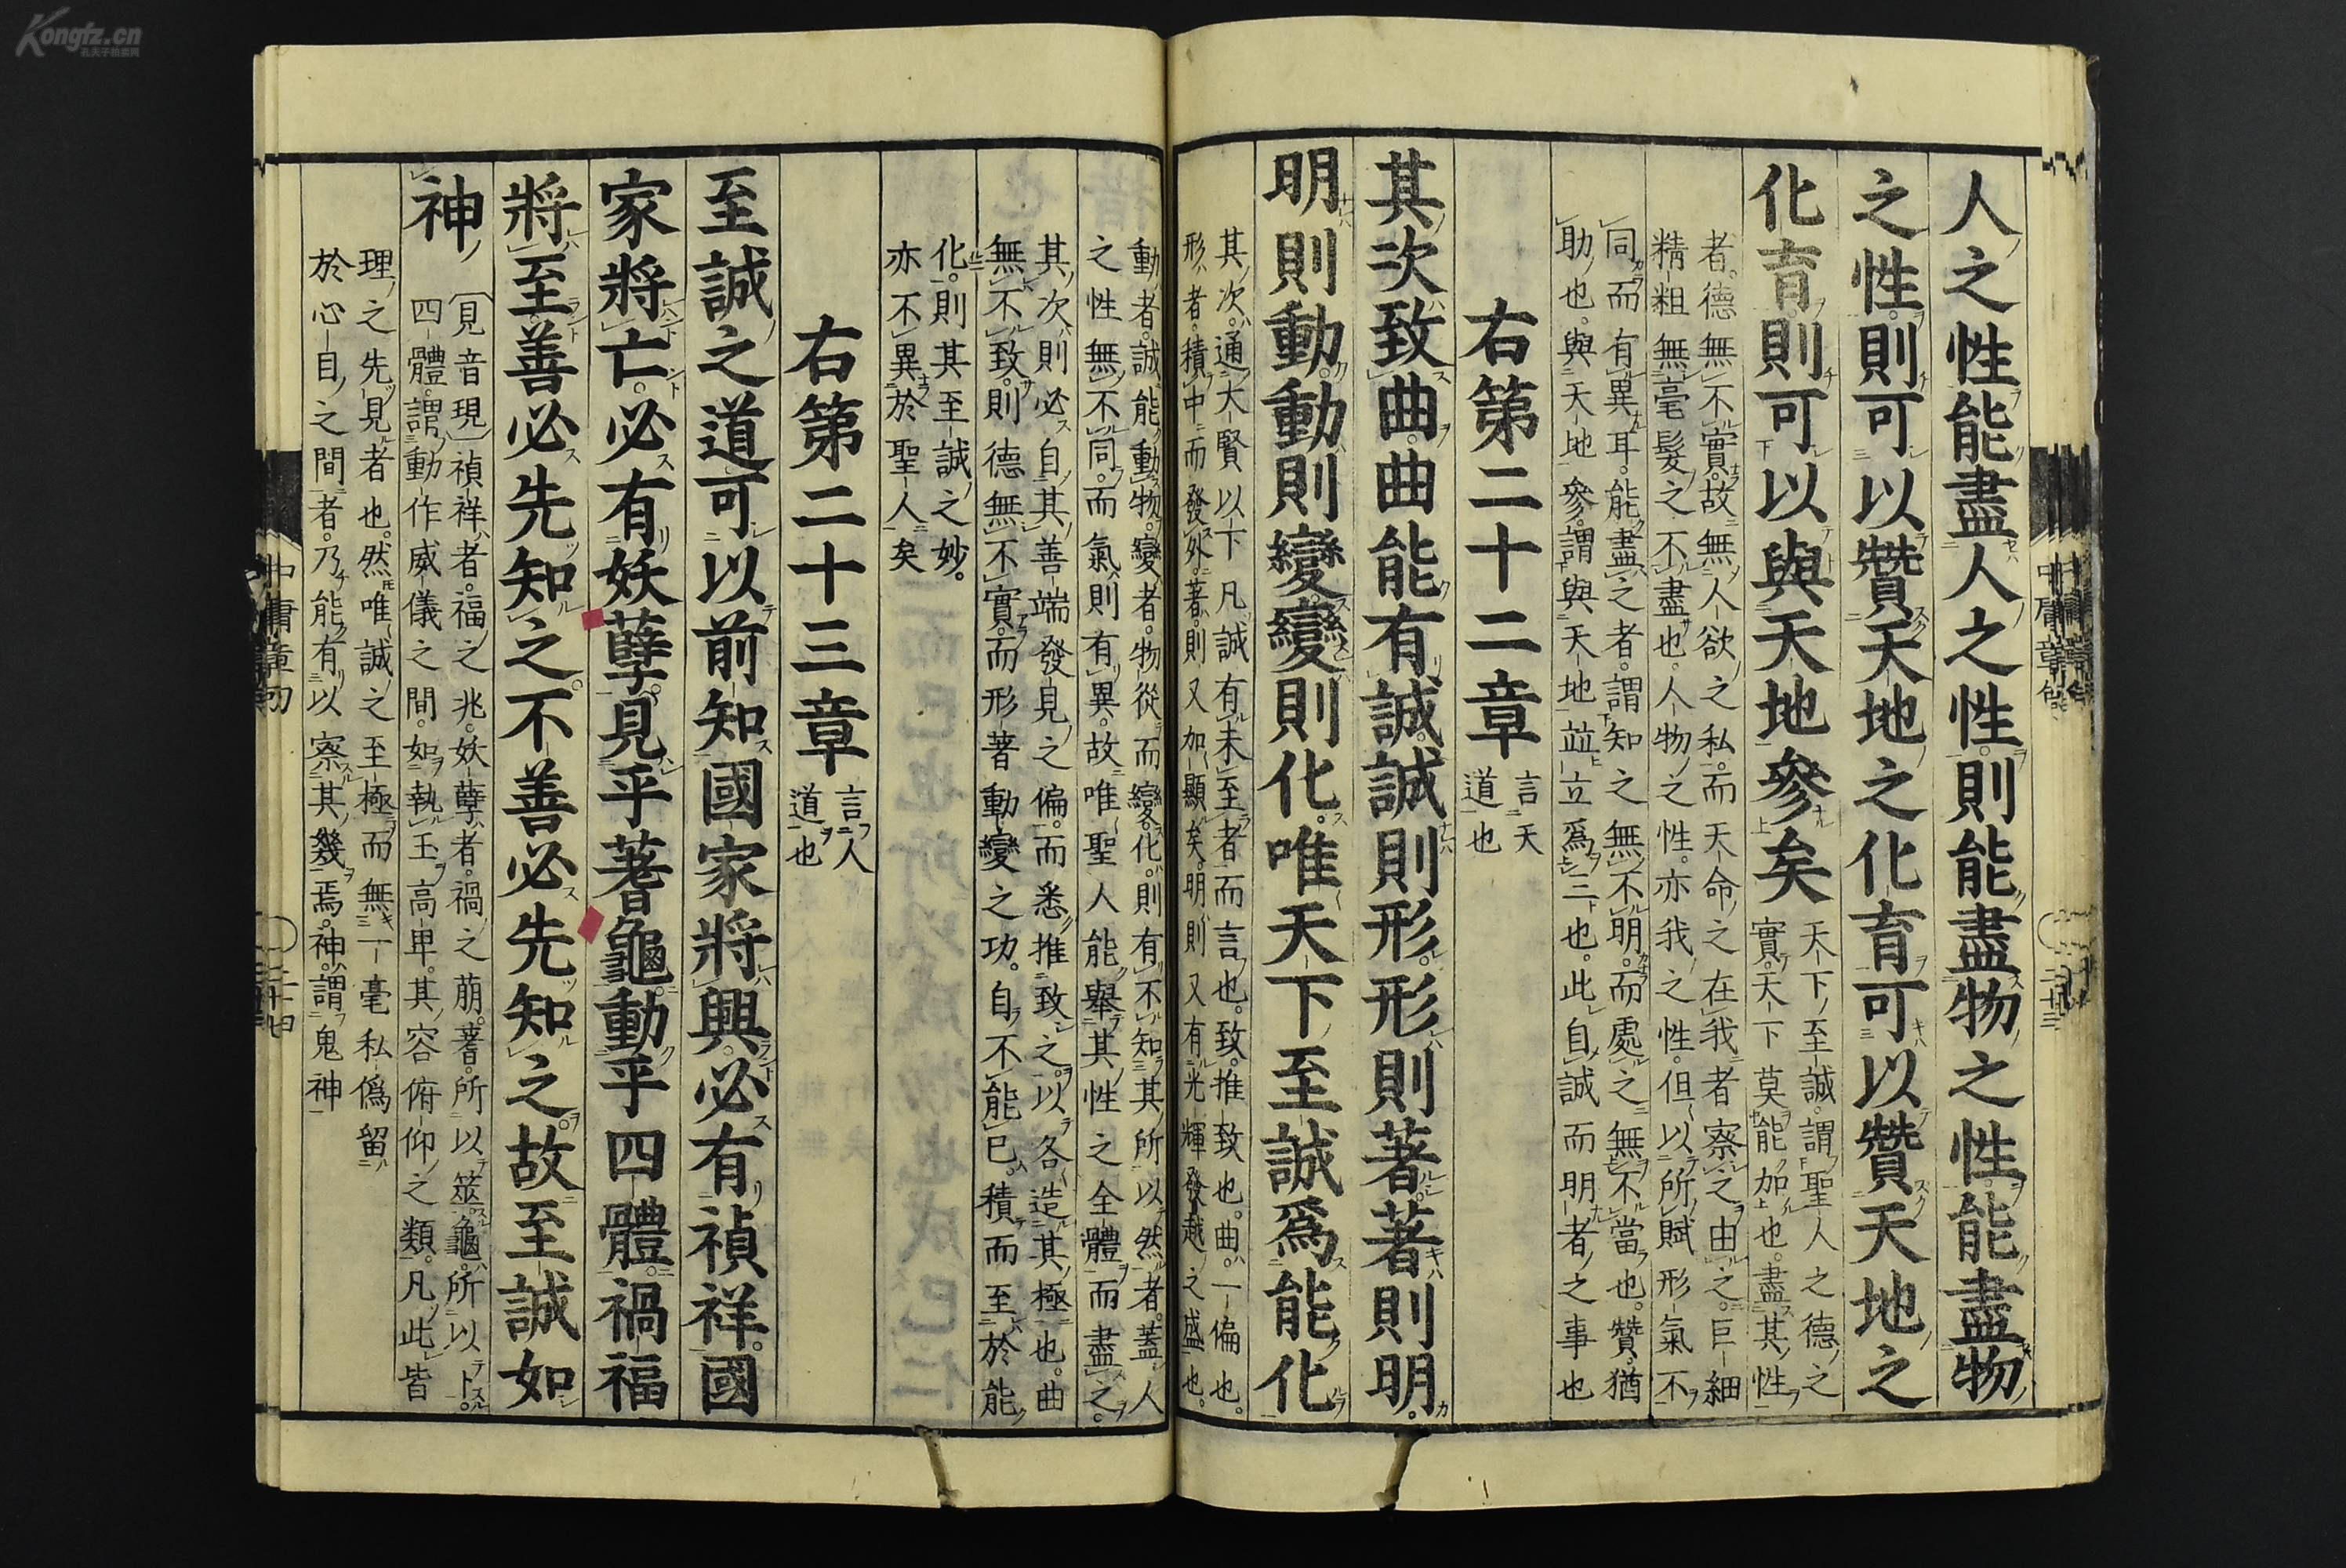 人之性能盡人之性則能盡物之性能盡物
之性則可以贊天地之化育可以贊天地之
化育則可以與天地參矣
天下至誠謂聖人之德之
實天下莫能加也盡其性
者德無不實故無人欲之私而天命之在我者察之由之巨細
精粗無毫髮之不盡也人物之性亦我之性但以所賦形氣不
同而有異耳能盡之者謂知之無不明而處之無不當也贊猶
助也與天地參謂與天地竝立爲三也此自誠而明者之事也
右第二十二章
言天
道也
其次致曲曲能有誠誠則形形則著著則明
明則動動則變變則化唯天下至誠爲能化
其次通大賢以下凡誠有未至者而言也致推致也曲一偏也
形者積中而發外著則又加顯矣明則又有光輝發越之盛也
動者誠能動物變者物從而變化則有不知其所以然者蓋人
之性無不同而氣則有異故唯聖人能舉其性之全體而盡之
其次則必自其善端發見之偏而悉推致之以各造其極也曲
無不致則德無不實而形著動變之功自不能已積而至於能
化則其至誠之妙
亦不異於聖人矣
右第二十三章
言人
道也
至誠之道可以前知國家將興必有禎祥國
家將亡必有妖孽見乎蓍龜動乎四體禍福
將至善必先知之不善必先知之故至誠如
神
見音現禎祥者福之兆妖孽者禍之萠蓍所以筮龜所以卜
四體謂動作威儀之間如執玉高卑其容俯仰之類凡此皆
理之先見者也然唯誠之至極而無一毫私僞留
於心目之間者乃能有以察其幾焉神謂鬼神
中庸章句
二十三
Kongfz.cn